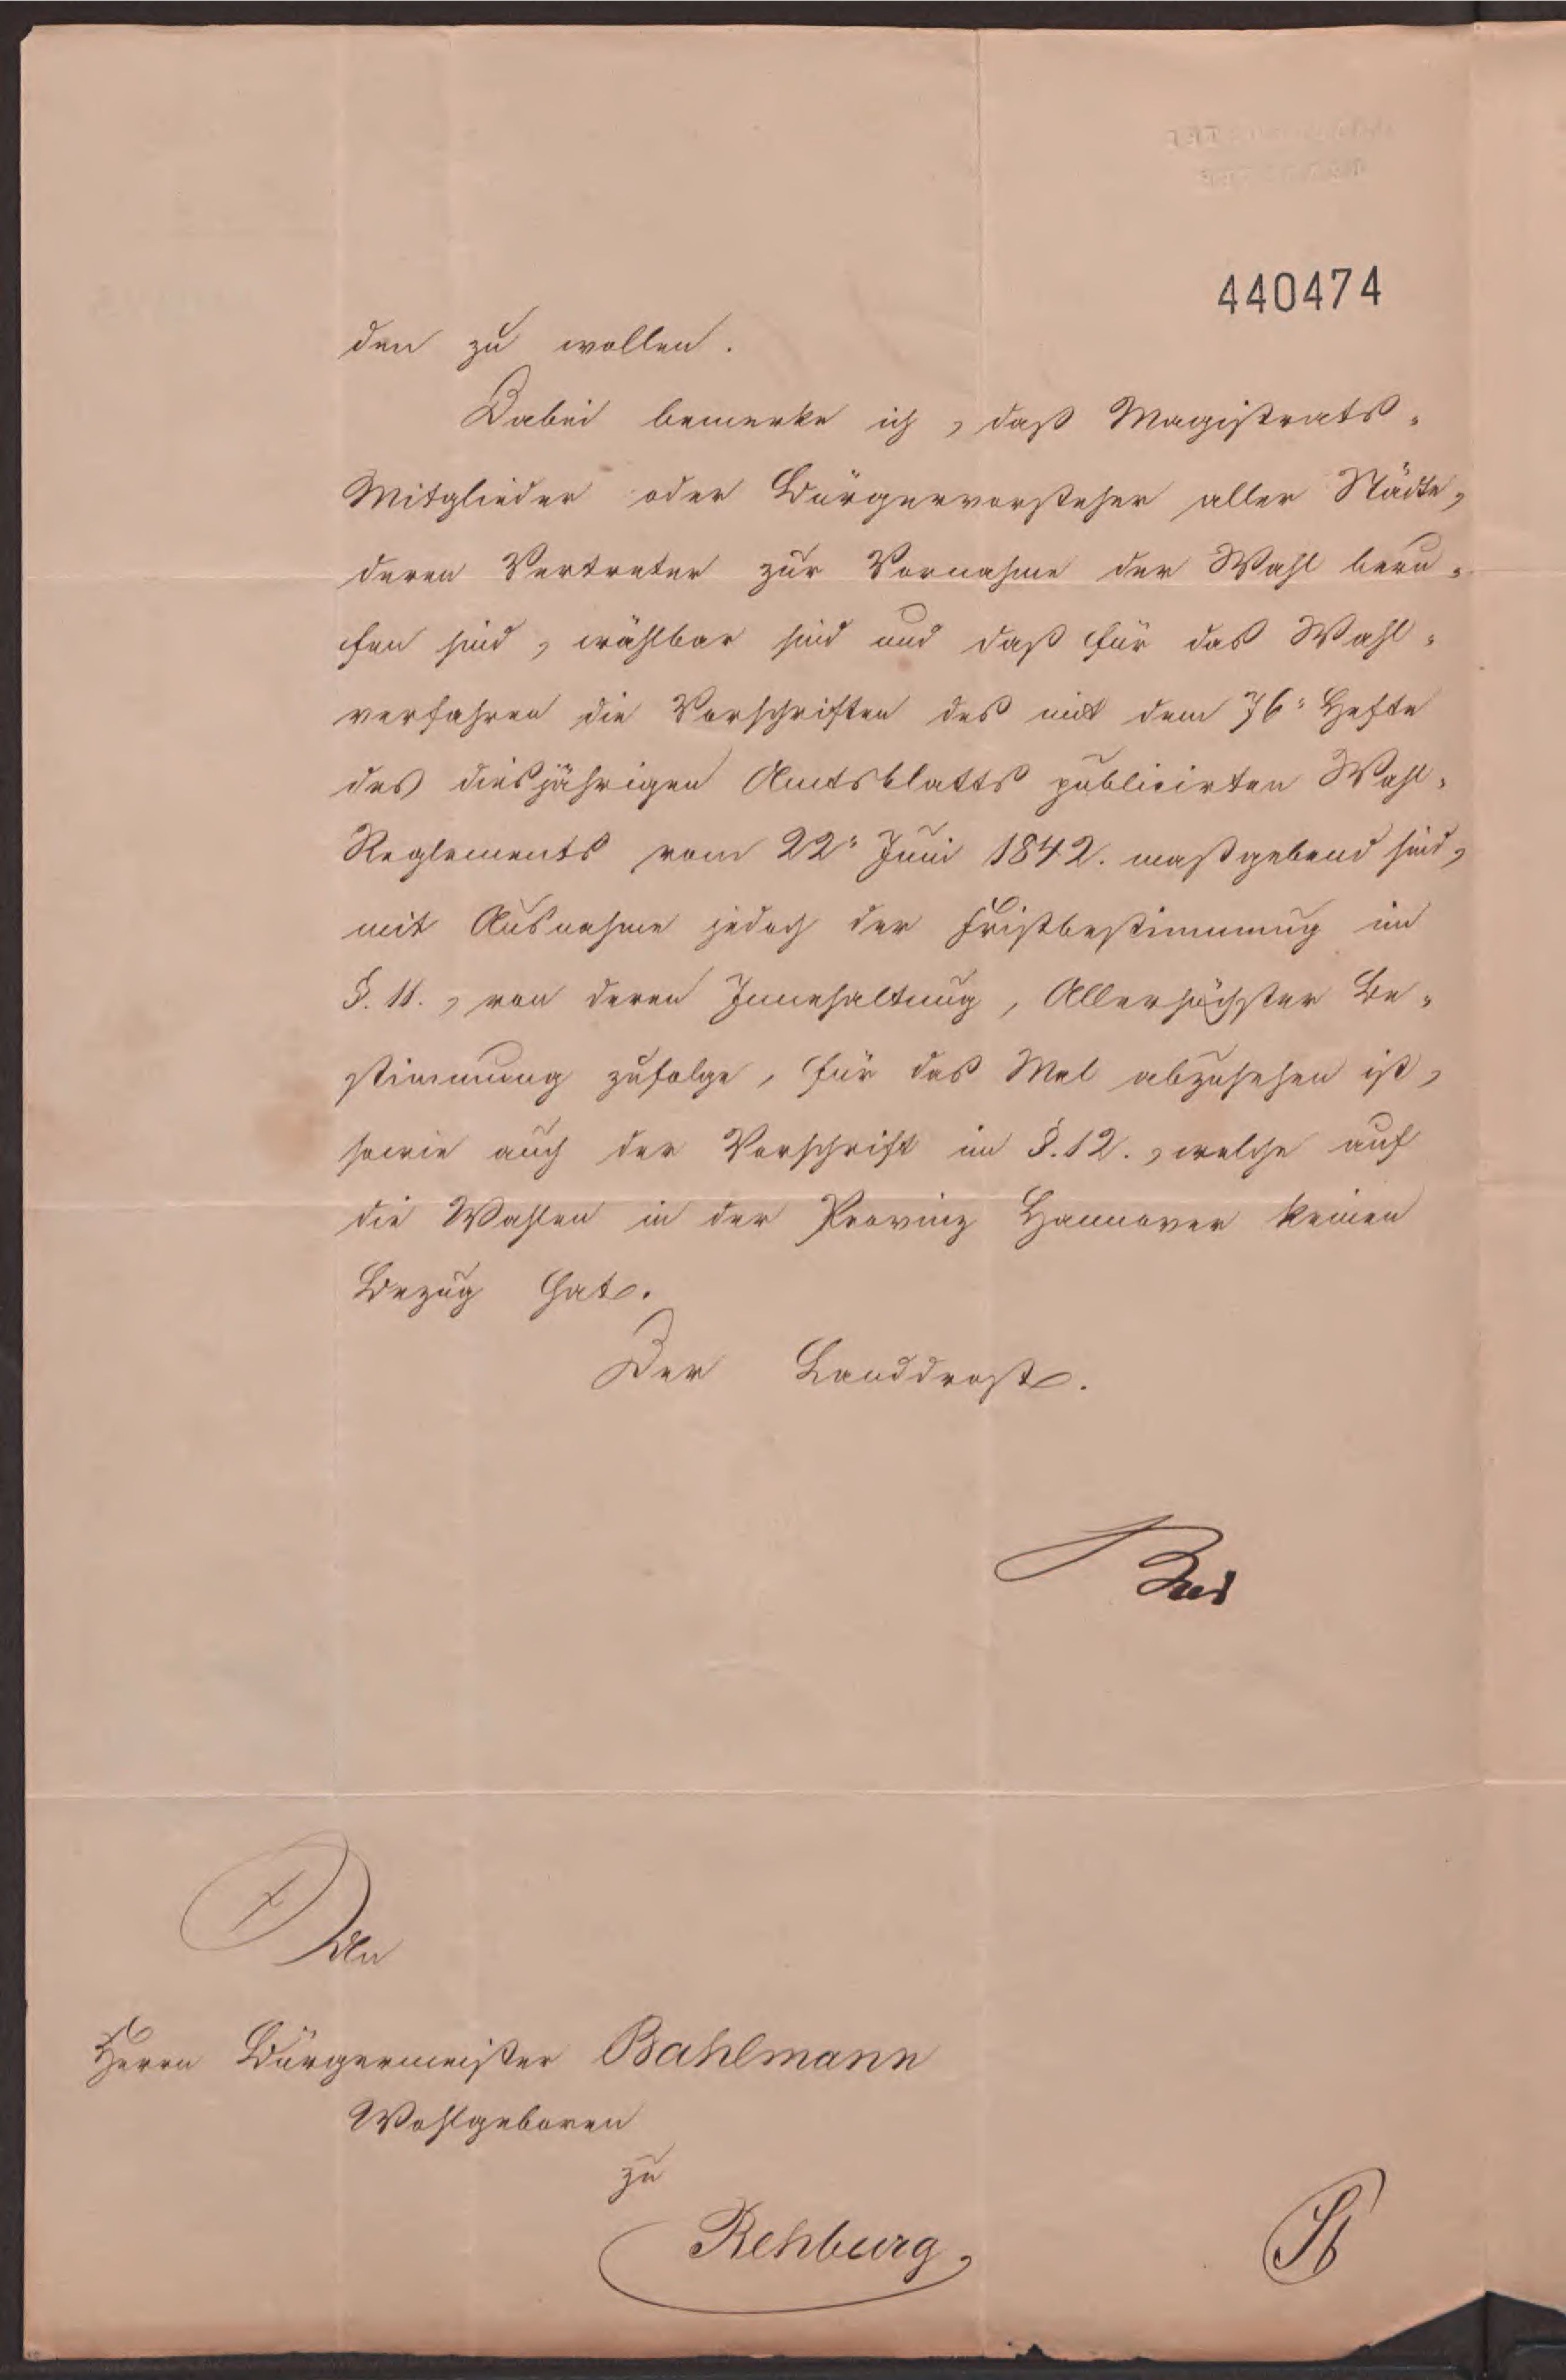 440474
den zu wollen.
Dabei bemerke ich, daß Magistrats-
Mitglieder oder Bürgervorsteher aller Städte,
deren Vertreter zur Vornahme der Wahl beru-
fen sind, wählbar sind und daß für das Wahl-
verfahren die Vorschriften des mit dem 76" Hefte
des diesjährigen Amtsblatts publicirten Wahl-
Reglements vom 22" Juni 1842. maßgebend sind,
mit Ausnahme jedoch der Fristbestimmung im
§. 11., von deren Innehaltung, Allerhöchster Be-
stimmung zufolge, für das Mal abzusehen ist,
sowie auch der Vorschrift im §. 12., welche auf
die Wahlen in der Provinz Hannover keinen
Bezug hat.
Der Landdrost.
An
Herrn Bürgermeister Bahlmann
Wohlgeboren
zu
Rehburg,